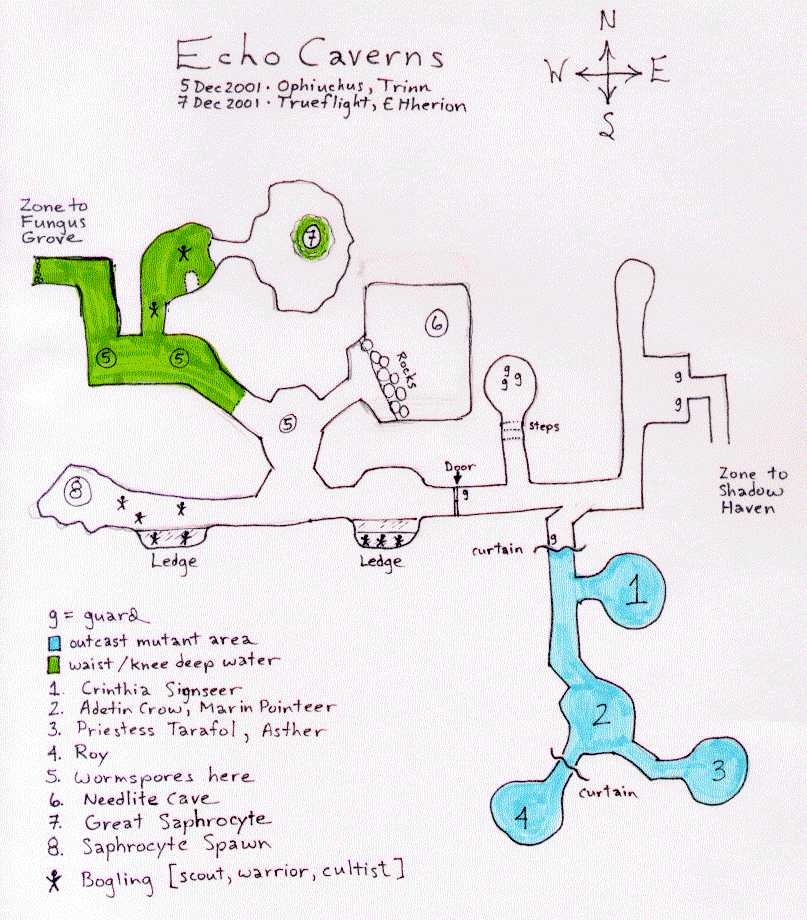 Echo Caverns
5 Dec 2001 · Ophiuchus, Trinn
7 Dec 2001 · Trueflight, EHherion
N
W E
S
Zone to
Fungus
Grove
7
6
Rocks
5 5
5
g
g g
steps
g
g
Zone to
Shadow
Haven
8
Door
g
Ledge
Ledge
curtain
g
1
2
3
4
curtain
g = guard
outcast mutant area
waist/knee deep water
1. Crinthia Signseer
2. Adetin Crow, Marin Pointeer
3. Priestess Tarafol, Asther
4. Roy
5. Wormspores here
6. Needlite Cave
7. Great Saphrocyte
8. Saphrocyte Spawn
Bogling [scout, warrior, cultist]